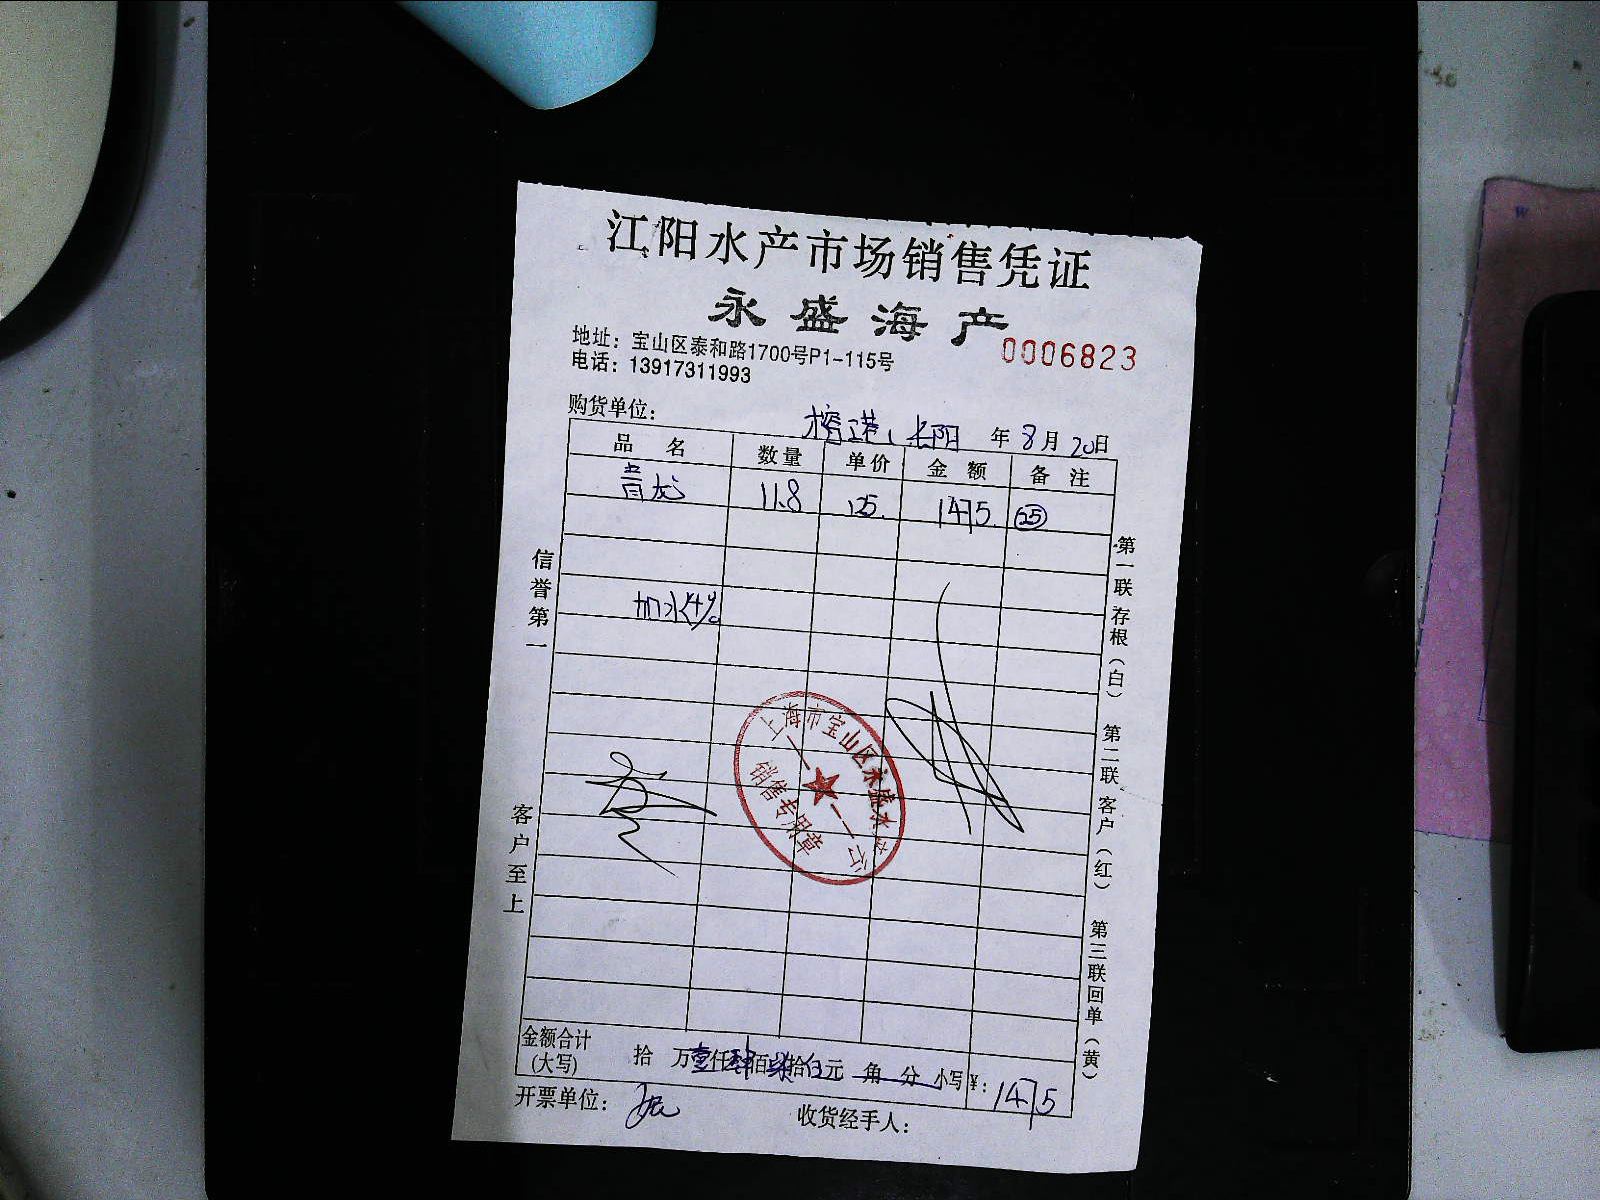 江阳水产市场销售凭证
永盛海产
地址：宝山区泰和路1700号P1-115号
0006823
电话：13917311993
购货单位：
榕港、长阳 年 8 月 20 日
品名 数量 单价 金额 备注
青龙 11.8 125. 1475. 25
加水4%
信誉第一
客户至上
第一联 存根（白） 第二联 客户（红） 第三联 回单（黄）
上海市宝山区永盛水产
销售专用章
金额合计(大写) 拾 万壹仟肆百柒拾伍元 角 分 小写¥：1475
开票单位：
收货经手人：